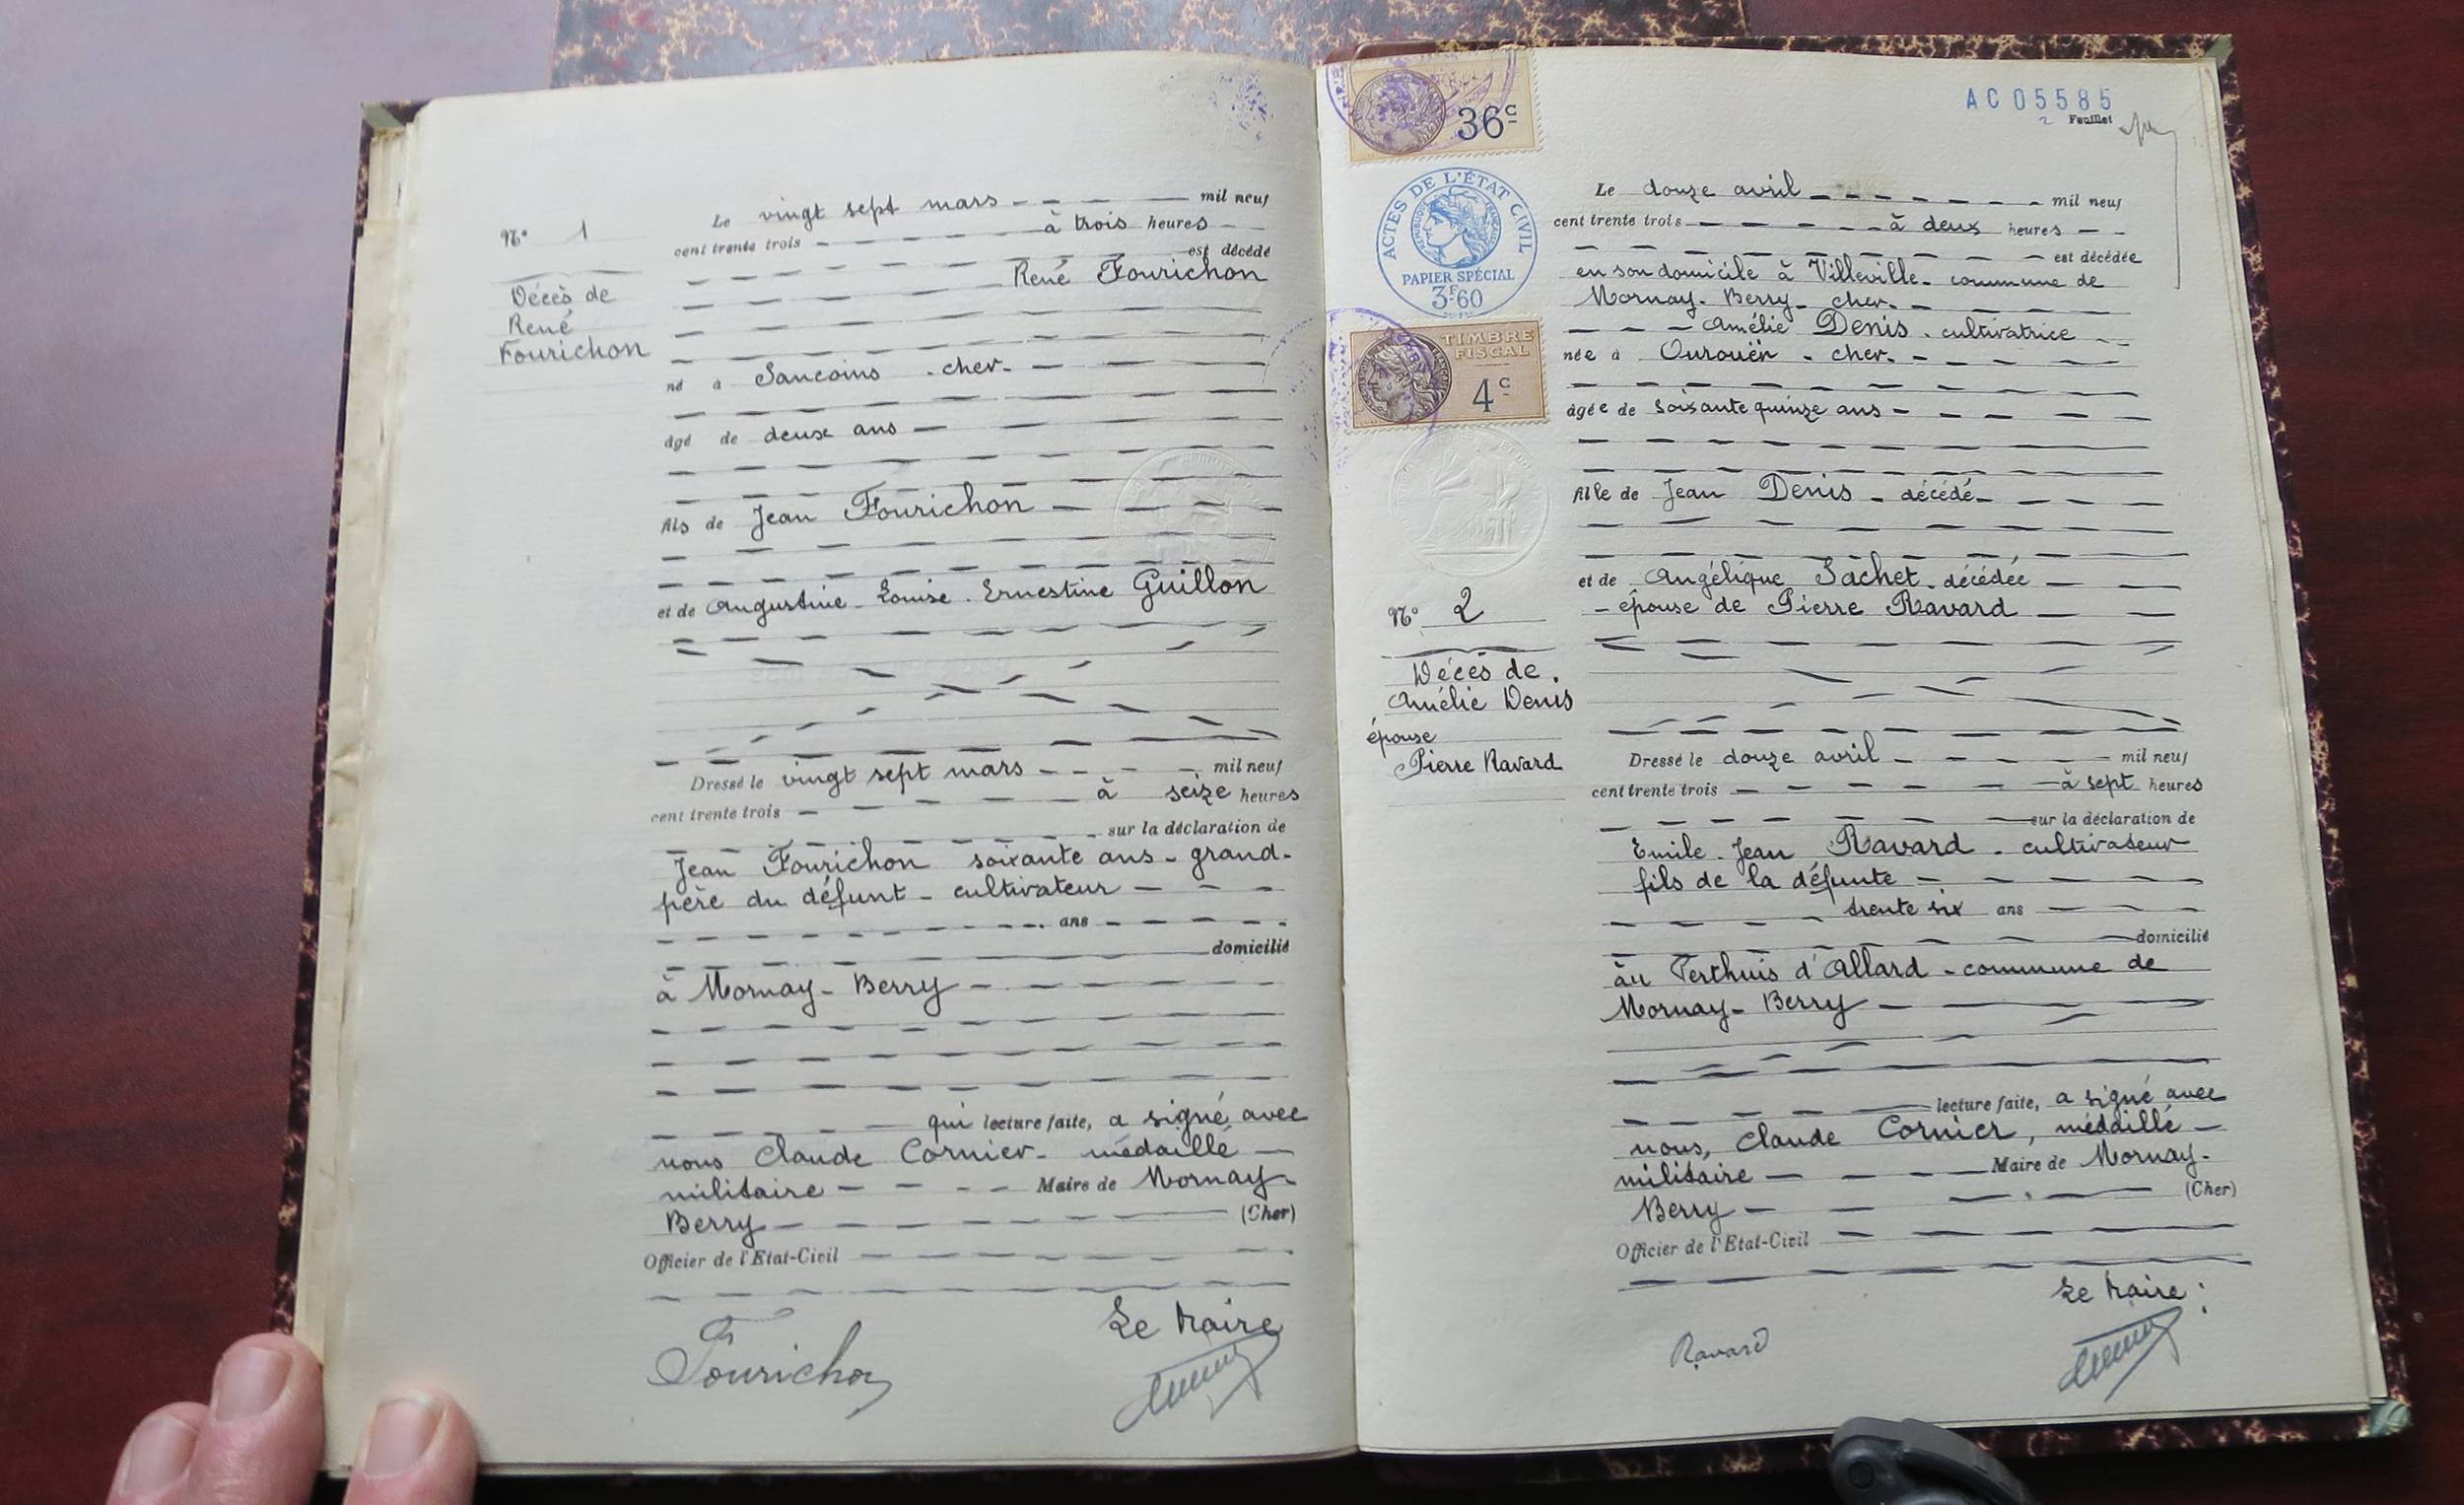 Nº 1
Décès de
René
Fourichon
Le vingt sept mars mil neuf
cent trente trois à trois heures
est décédé
René Fourichon
né à Sancoins - cher -
âgé de deux ans
fils de Jean Fourichon
et de Augustine - Louise - Ernestine Guillon
Dressé le vingt sept mars mil neuf
cent trente trois à seize heures
sur la déclaration de
Jean Fourichon soixante ans - grand-
père du défunt - cultivateur
ans
domicilié
à Mornay - Berry
qui lecture faite, a signé avec
nous Claude Cornier - médaillé
militaire Maire de Mornay-
Berry (Cher)
Officier de l'Etat-Civil
Le Maire
Fourichon
36c
ACTES DE L'ÉTAT CIVIL
RÉPUBLIQUE FRANÇAISE
PAPIER SPÉCIAL
3F60
TIMBRE
FISCAL
4c
Nº 2
Décès de
Amélie Denis
épouse
Pierre Ravard
AC05585
2 Feuillet
Le douze avril mil neuf
cent trente trois à deux heures
est décédée
en son domicile à Villeville - commune de
Mornay - Berry - cher -
Amélie Denis - cultivatrice
née à Ourouër - cher -
âgée de soixante quinze ans
fille de Jean Denis - décédé
et de Angélique Sachet - décédée
- épouse de Pierre Ravard
Dressé le douze avril mil neuf
cent trente trois à sept heures
sur la déclaration de
Emile - Jean Ravard - cultivateur
fils de la défunte
trente six ans
domicilié
au Perthuis d'Allard - commune de
Mornay - Berry
lecture faite, a signé avec
nous, Claude Cornier, médaillé
militaire Maire de Mornay-
Berry (Cher)
Officier de l'Etat-Civil
Le Maire :
Ravard